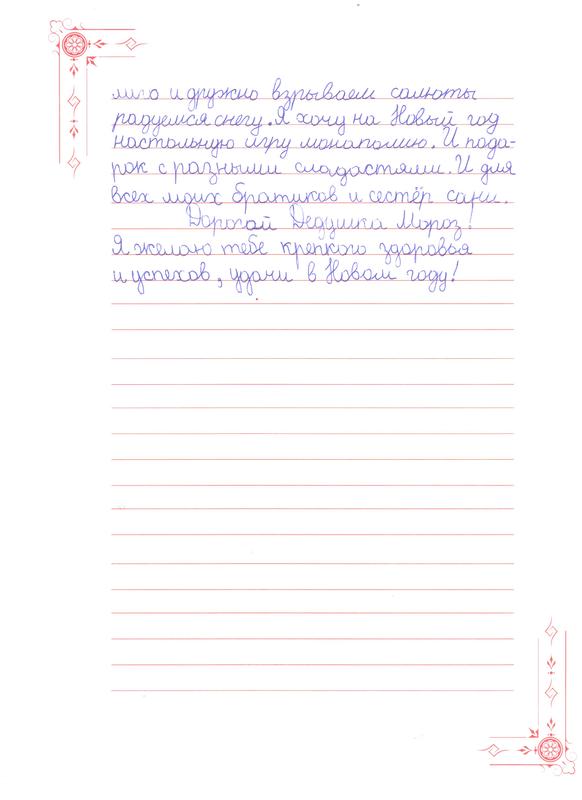 лиго и дружно взрываем салюты
радуемся снегу. Я хочу на Новый год
настольную игру монаполию. И пода-
рок с разными сладастями. И для
всех моих братиков и сестёр сани.
Дорогой Дедушка Мороз!
Я желаю тебе крепкого здоровья
и успехов, удачи в Новом году!